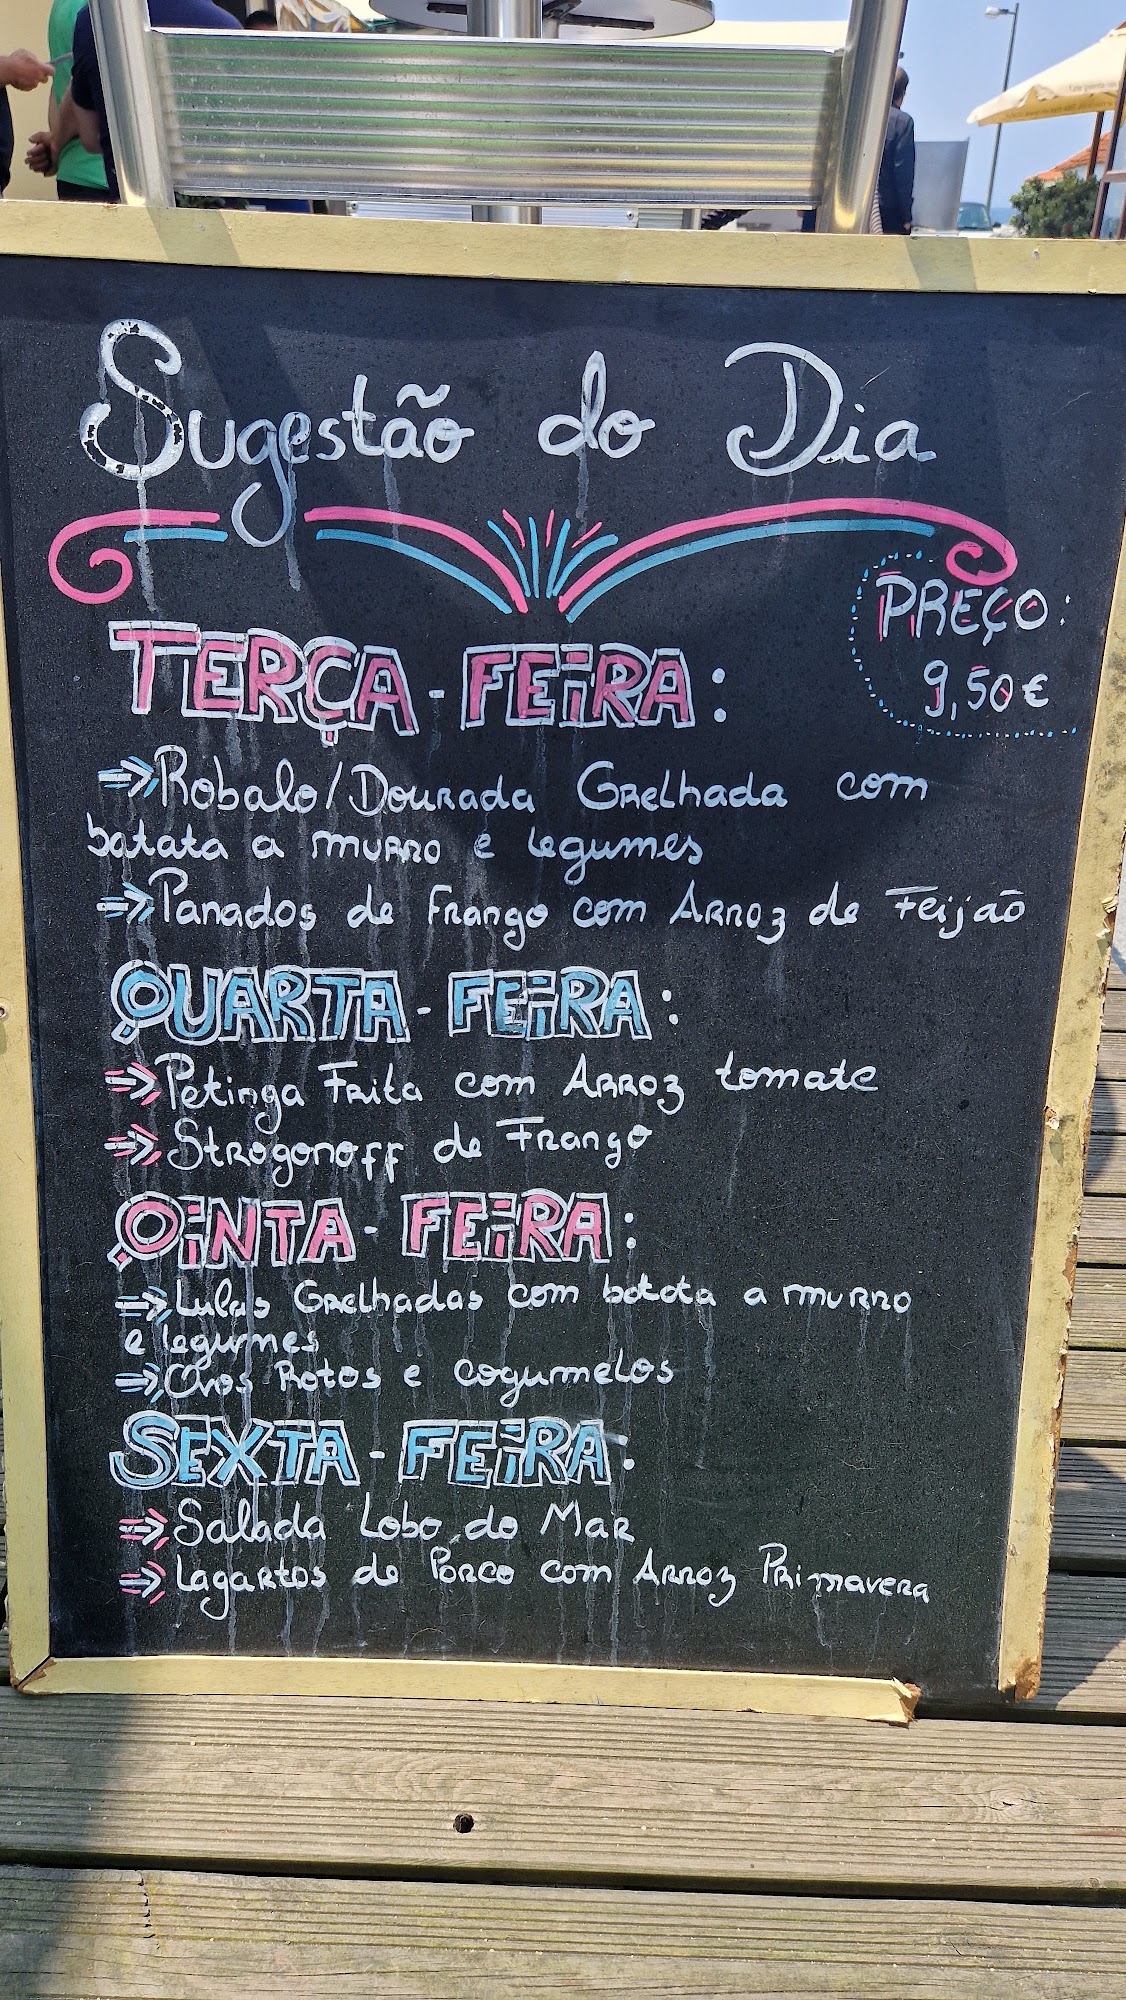 Sugestão do Dia
PREÇO:
9,50€
TERÇA-FEIRA:
⇒Robalo/Dourada Grelhada com
batata a murro e legumes
⇒Panados de Frango com Arroz de Feijão
QUARTA-FEIRA:
⇒Petinga Frita com Arroz tomate
⇒Strogonoff de Frango
QINTA-FEIRA:
⇒Lulas Grelhadas com batata a murro
e legumes
⇒Ovos Rotos e cogumelos
SEXTA-FEIRA:
⇒Salada Lobo do Mar
⇒Lagartos de Porco com Arroz Primavera